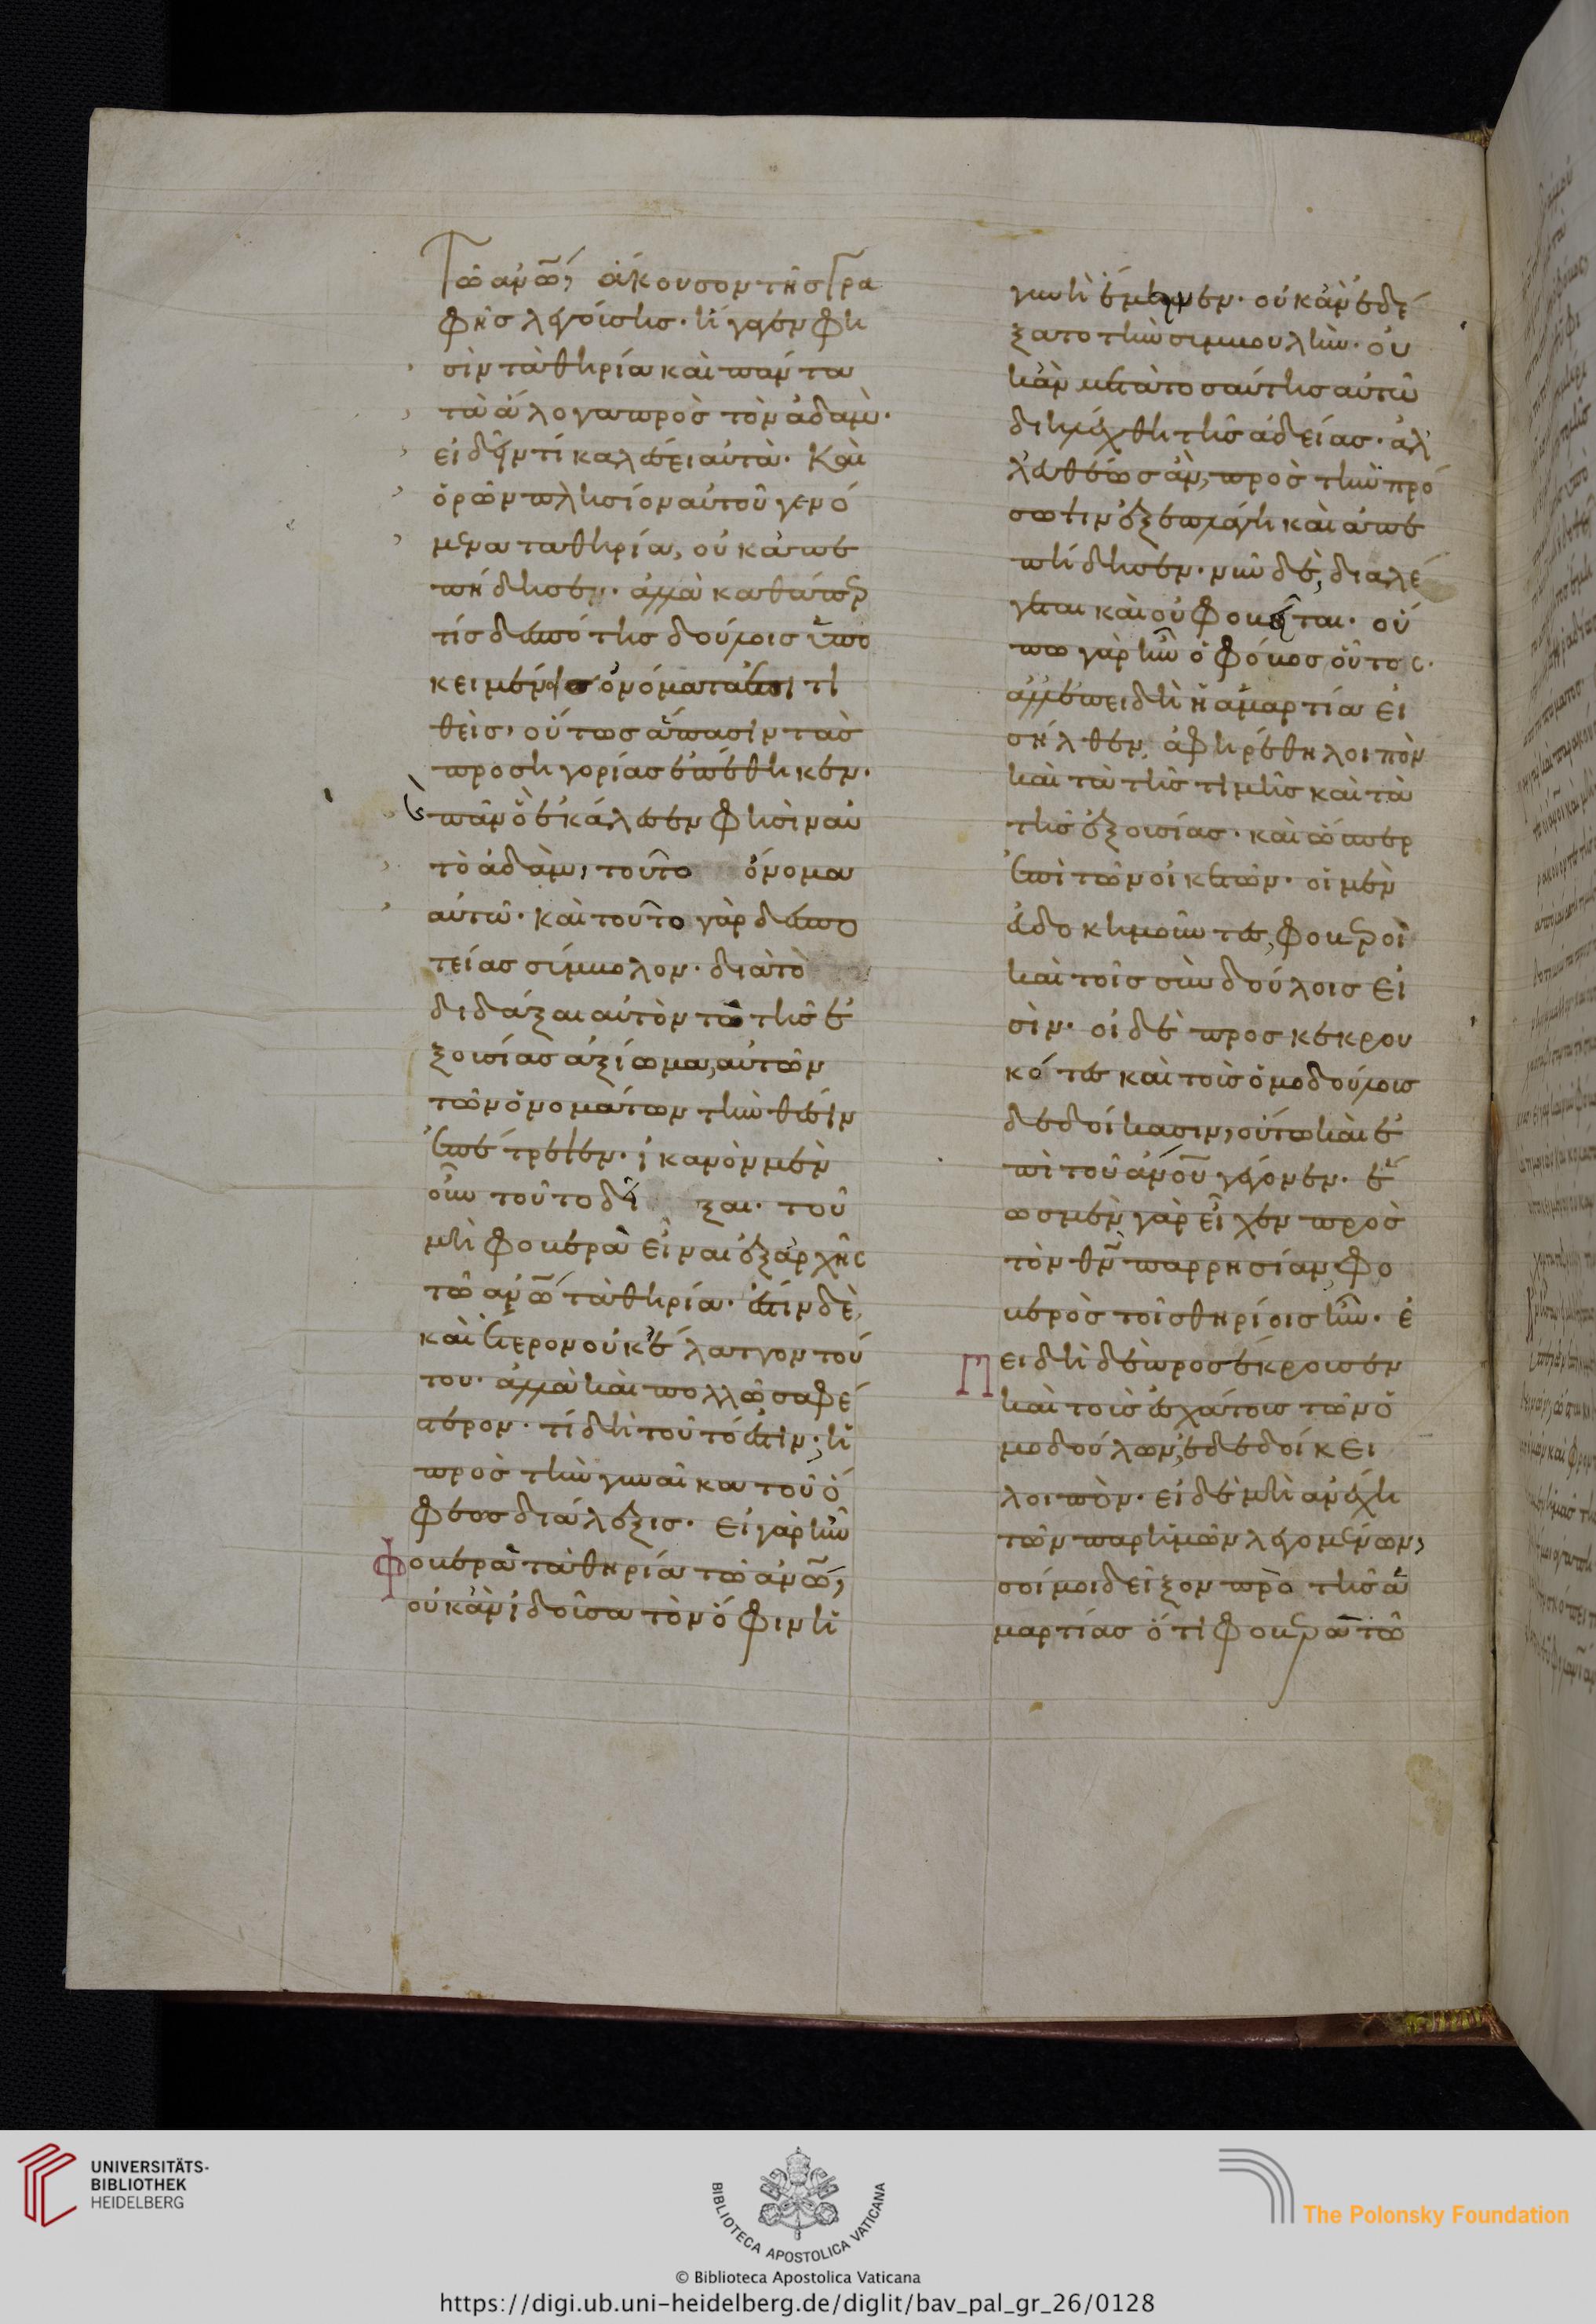 τῶ ἀνῶ, ἄκουσον τῆς γρα
φῆς λεγούσης· ἤγαγεν φη
σὶν τὰ θηρία καὶ πάντα
τὰ ἄλογα πρὸς τὸν ἀδὰμ·
εἰδεῖν τί καλέσει αὐτὰ· καὶ
ὁρῶν πλησίον αὐτοῦ γενό
μενα τα θηρία, οὐκ ἀπε
πήδησεν· ἀλλὰ καθάπερ
τίς δεσπότης δούλοις ὑπο
κειμένοις ὀνόματα ἐπιτι
θεὶς, οὕτως ἅπασιν τὰς
προσηγορίας ἐπέθηκεν·
πᾶν ὃ ἐκάλεσεν φησὶν αὐ
τὸ ἀδὰμ, τοῦτο ὄνομα
αὐτῶ· καὶ τοῦτο γὰρ δεσπο
τείας σύμβολον· διὰ τὸ
διδάξαι αὐτὸν τὸ τῆς ἐ
ξουσίας ἀξίωμα, αὐτῶν
τῶν ὀνομάτων τὴν θέσιν
ἐπέτρεψεν· ἱκανὸν μὲν
οὖν τοῦτο δεῖξαι· τοῦ
μὴ φοβερὰ εἶναι ἐξαρχῆς
τῶ ἀνῶ τὰ θηρία· ἔστιν δὲ
καὶ ἕτερον οὐκ ἔλαττον τού
του· ἀλλὰ καὶ πολλῶ σαφέ
στερον· τί δὴ τοῦτό ἐστιν; ἡ
πρὸς τὴν γυναῖκα τοῦ ὄ
φεως διάλεξις· εἰ γὰρ ἦν
φοβερὰ τὰ θηρία τῶ ἀνῶ,
οὐκ ἂν ἰδοῦσα τὸν ὄφιν ἡ
γυνὴ ἔμεινεν· οὐκ ἂν ἐδέ
ξατο τὴν συμβουλὴν· οὐ
κἂν μετὰ τοσαύτης αὐτῶ
διηλέχθη τῆς ἀδείας· ἀλ
λ' εὐθέως ἂν, πρὸς τὴν πρό
σοψιν ἐξεπλάγη καὶ ἀπε
πήδησεν· νῦν δὲ, διαλέ
γεται καὶ οὐ φοβεῖται· οὔ
πω γὰρ ἦν ὁ φόβος οὗτος·
ἀλλ' ἐπειδὴ ἡ ἁμαρτία εἰ
σῆλθεν, ἀφηρέθη λοιπὸν
καὶ τὰ τῆς τιμῆς καὶ τὰ
τῆς ἐξουσίας· καὶ ὥσπερ
ἐπὶ τῶν οἰκετῶν· οἱ μὲν
εὐδοκιμοῦντες, φοβεροὶ
καὶ τοῖς συνδούλοις εἰ
σὶν· οἱ δὲ προσκεκρου
κότες καὶ τοὺς ὁμοδούλους
δεδοίκασιν, οὕτω καὶ ἐ
πὶ τοῦ ἀνοῦ γέγονεν· ἕ
ως μὲν γὰρ εἶχεν πρὸς
τὸν θν παρρησίαν, φο
βερὸς τοῖς θηρίοις ἦν· ἐ
Πειδὴ δὲ προσέκρουσεν
καὶ τοὺς ἐσχάτους τῶν ὁ
μοδούλων, ἐδεδοίκει
λοιπὸν· εἰ δὲ μὴ ἀνέχη
τῶν παρ ἡμῶν λεγομένων,
σύ μοι δεῖξον πρὸ τῆς ἁ
μαρτίας ὅτι φοβερὰ τῶ
UNIVERSITÄTS-
BIBLIOTHEK
HEIDELBERG
BIBLIOTECA APOSTOLICA VATICANA
The Polonsky Foundation
© Biblioteca Apostolica Vaticana
https://digi.ub.uni-heidelberg.de/diglit/bav_pal_gr_26/0128